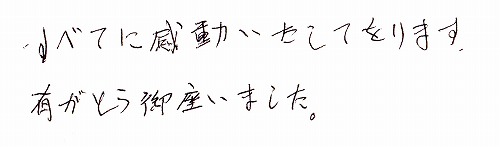 すべてに感動いたしてをります
有がとう御座いました。